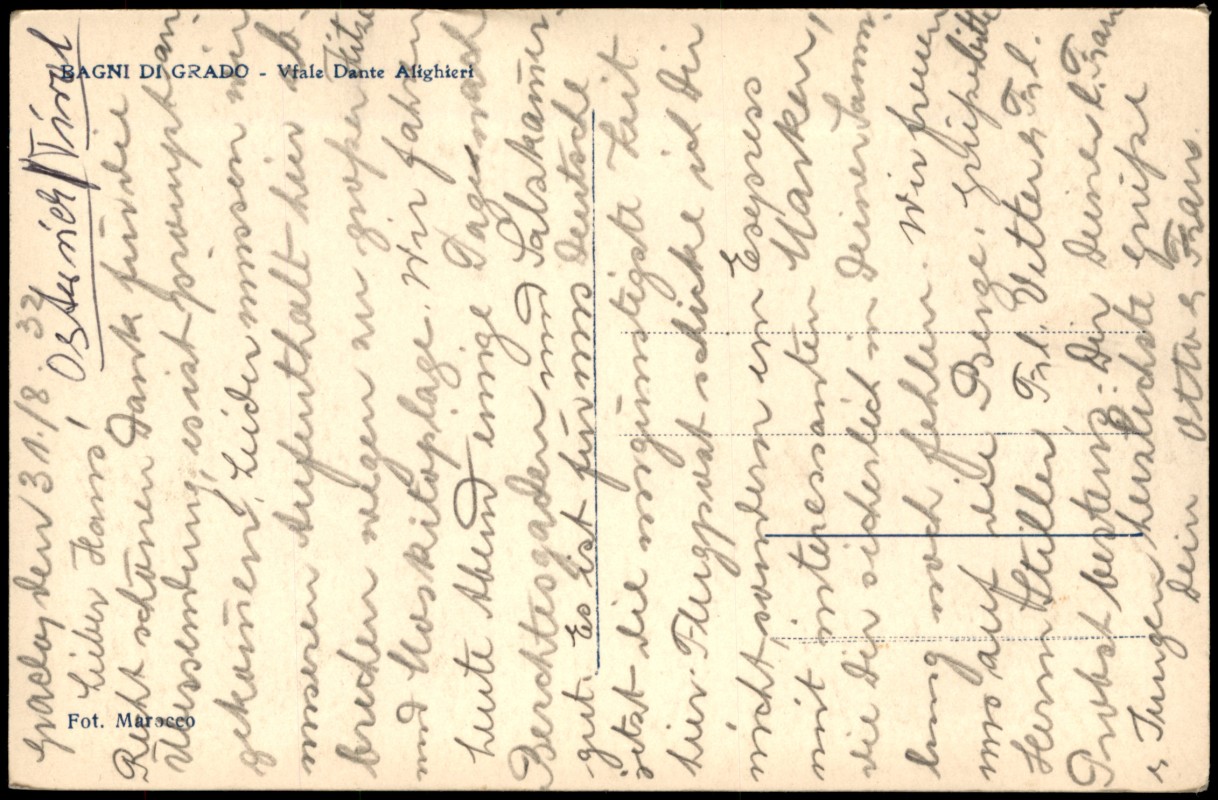 BAGNI DI GRADO - Viale Dante Alighieri
Fot. Marocco
Grado, den 31./8. 32
Lieber Hans,
Recht schönen Dank für die
Übersendung, es ist prompt an-
gekom̅en. Leider müssen wir
unseren Aufenthalt hier ab-
brechen wegen zu großer Hitze
und Moskitoplage. Wir fahren
heute Abend einige Tage nach
Berchtesgaden und Salzkam̅er-
gut. Es ist für uns Deutsche
jetzt die ungünstigste Zeit
hier. Flugpost schicke ich Dir
nicht, sondern per Express
mit interessanten Marken,
die Dir sicherlich in Deiner Samm-
lung noch fehlen. Wir freuen
uns auf die Berge. Grüße bitte
Herrn Stiller, Frl. Vetter & Frl.
Probst bestens. Dir, Deiner l. Frau
& Jungen herzlichste Grüße
Dein Otto & Frau.